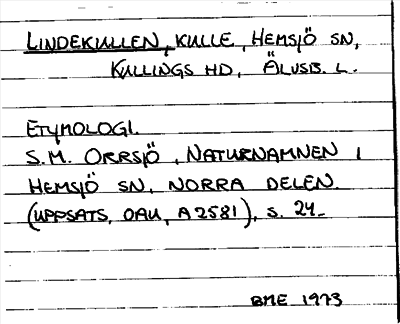 LINDEKULLEN, KULLE, HEMSJÖ SN,
KULLINGS HD, ÄLVSB. L.
ETYMOLOGI.
S.M. ORRSJÖ, NATURNAMNEN I
HEMSJÖ SN, NORRA DELEN.
(UPPSATS, OAU, A 2581), s. 24.
BME 1973